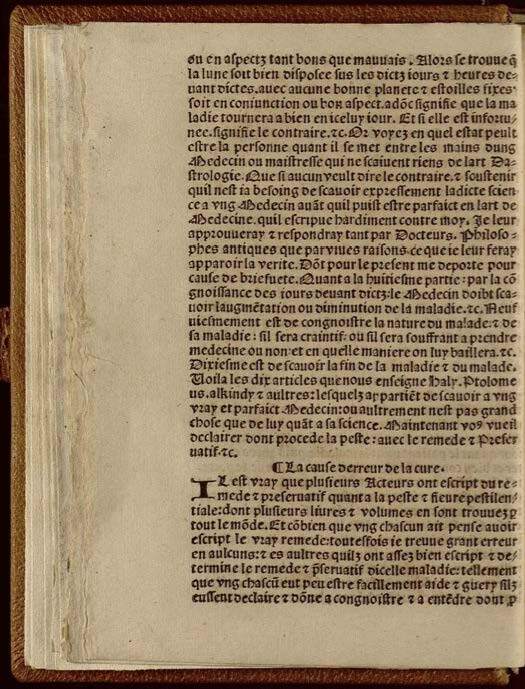 ou en aspectz tant bons que mauuais. Alors se trouue q̃
la lune soit bien disposee sus les dictz iours ⁊ heures de-
uant dictes. auec aucune bonne planete ⁊ estoilles fixes
soit en coniunction ou bon aspect. adõc signifie que la ma
ladie tournera a bien en iceluy iour. Et si elle est infortu-
nee. signifie le contraire. ⁊c. Or voyez en quel estat peult
estre la personne quant il se met entre les mains dung
Medecin ou maistresse qui ne scaiuent riens de lart Da-
strologie. Que si aucun veult dire le contraire. ⁊ soustenir
quil nest ia besoing de scauoir expressement ladicte scien-
ce a vng Medecin auãt quil puist estre parfaict en lart de
Medecine. quil escripue hardiment contre moy. Je leur
approuueray ⁊ respondray tant par Docteurs. Philoso-
phes antiques que par viues raisons. ce que ie leur feray
apparoir la verite. Dõt pour le present me deporte pour
cause de briefuete. Quant a la huitiesme partie: par la cõ
gnoissance des iours deuant dictz: le Medecin doibt sca-
uoir laugmẽtation ou diminution de la maladie. ⁊c. Neuf
uiesmement est de congnoistre la nature du malade: ⁊ de
sa maladie: sil sera craintif: ou sil sera souffrant a prendre
medecine ou non: et en quelle maniere on luy baillera. ⁊c.
Dixiesme est de scauoir la fin de la maladie ⁊ du malade.
Voila les dix articles que nous enseigne Haly. Ptolome
us. alkindy ⁊ aultres: lesquelz appartiẽt de scauoir a vng
vray et parfaict Medecin: ou aultrement nest pas grand
chose que de luy quãt a sa science. Maintenant voꝰ vueil
declairer dont procede la peste: auec le remede ⁊ Preser
uatif. ⁊c.
¶ La cause derreur de la cure.
IL est vray que plusieurs Acteurs ont escript du re-
mede ⁊ preseruatif quant a la peste ⁊ fieure pestilen-
tiale: dont plusieurs liures ⁊ volumes en sont trouuez ꝑ
tout le mõde. Et cõbien que vng chascun ait pense auoir
escript le vray remede: toutesfois ie treuue grant erreur
en aulcuns: ⁊ es aultres quilz ont assez bien escript ⁊ de-
termine le remede ⁊ p̃seruatif dicelle maladie: tellement
que vng chascũ eut peu estre facillement aide ⁊ guery silz
eussent declaire ⁊ dõne a congnoistre ⁊ a entẽdre dont ꝓ